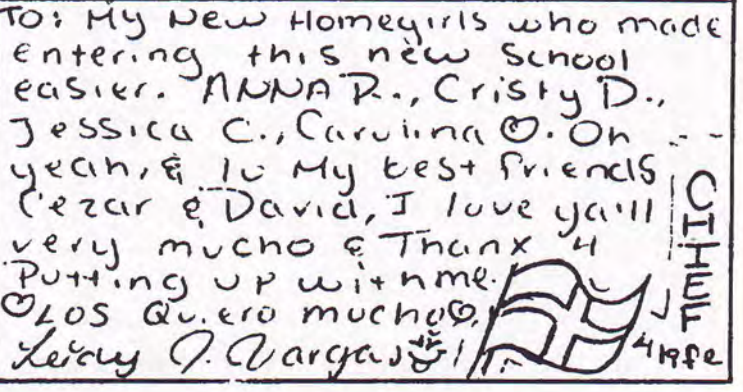 To: My New Homegirls who made
entering this new School
easier. ANNA R., Cristy D.,
Jessica C., Carolina ♡. Oh
yeah, & to My best friends
Cezar & David, I love ya'll
very mucho & Thanx 4
Putting up with me.
♡LOS Quiero mucho♡,
Leidy J. Vargas
CHIEF
4 life